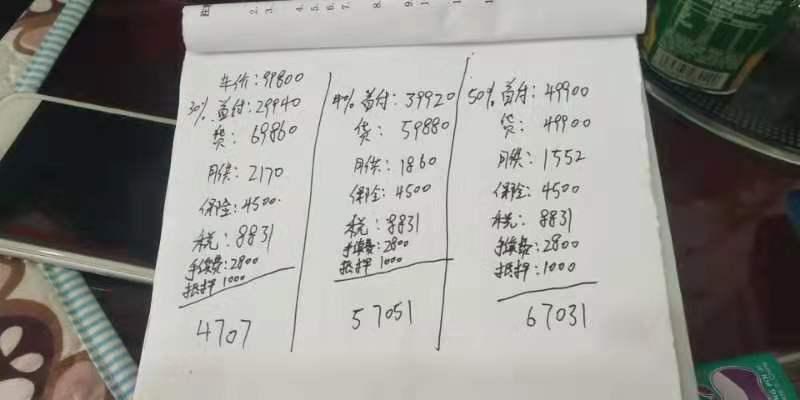 车价:99800
30% 首付:29940
贷:69860
月供:2170
保险:4500
税:8831
手续费:2800
抵押 1000
4707
40% 首付:39920
贷:59880
月供:1860
保险:4500
税:8831
手续费:2800
抵押 1000
57051
50% 首付:49900
贷:49900
月供:1552
保险:4500
税:8831
手续费:2800
抵押:1000
67031